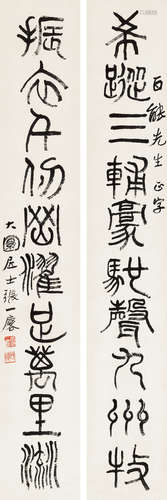 百能先生正字
希蹤三輔豪馳聲九州牧
振衣千仞岡濯足萬里流
大圜居士張一麐